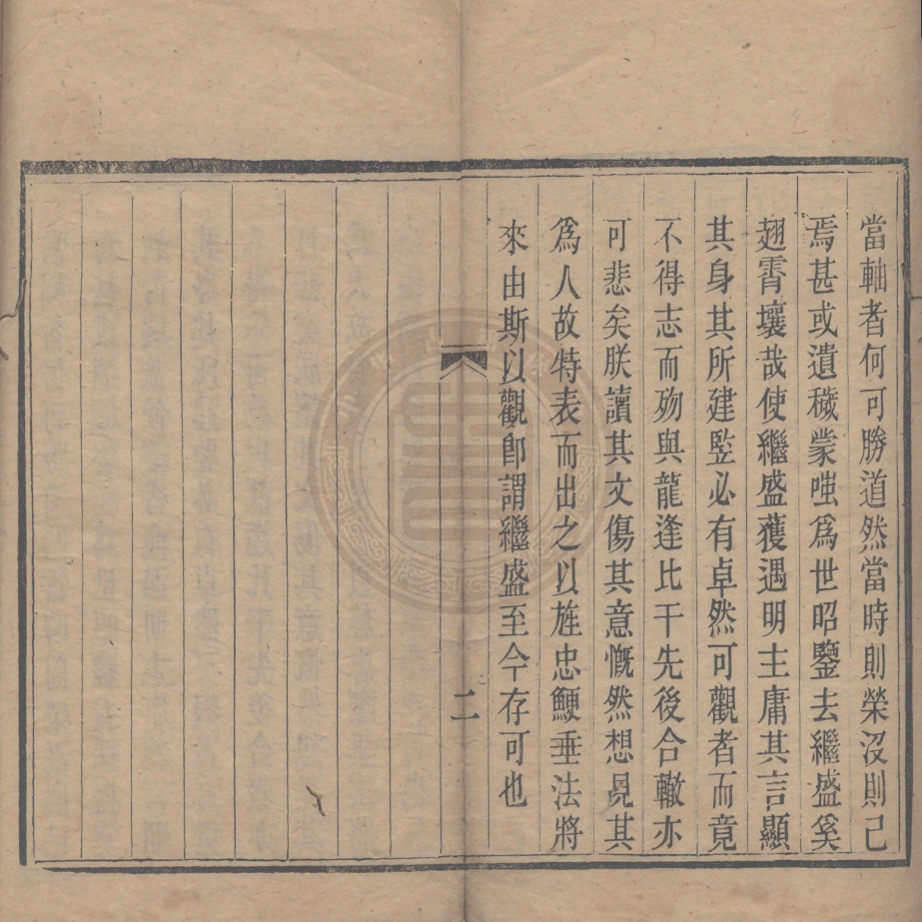 當軸者何可勝道然當時則榮沒則已
焉甚或遺穢蒙嗤為世昭鑒去繼盛奚
翅霄壤哉使繼盛獲遇明主庸其言顯
其身其所建豎必有卓然可觀者而竟
不得志而歿與龍逢比干先後合轍亦
可悲矣朕讀其文傷其意慨然想見其
為人故特表而出之以旌忠鯁垂法將
來由斯以觀即謂繼盛至今存可也
二